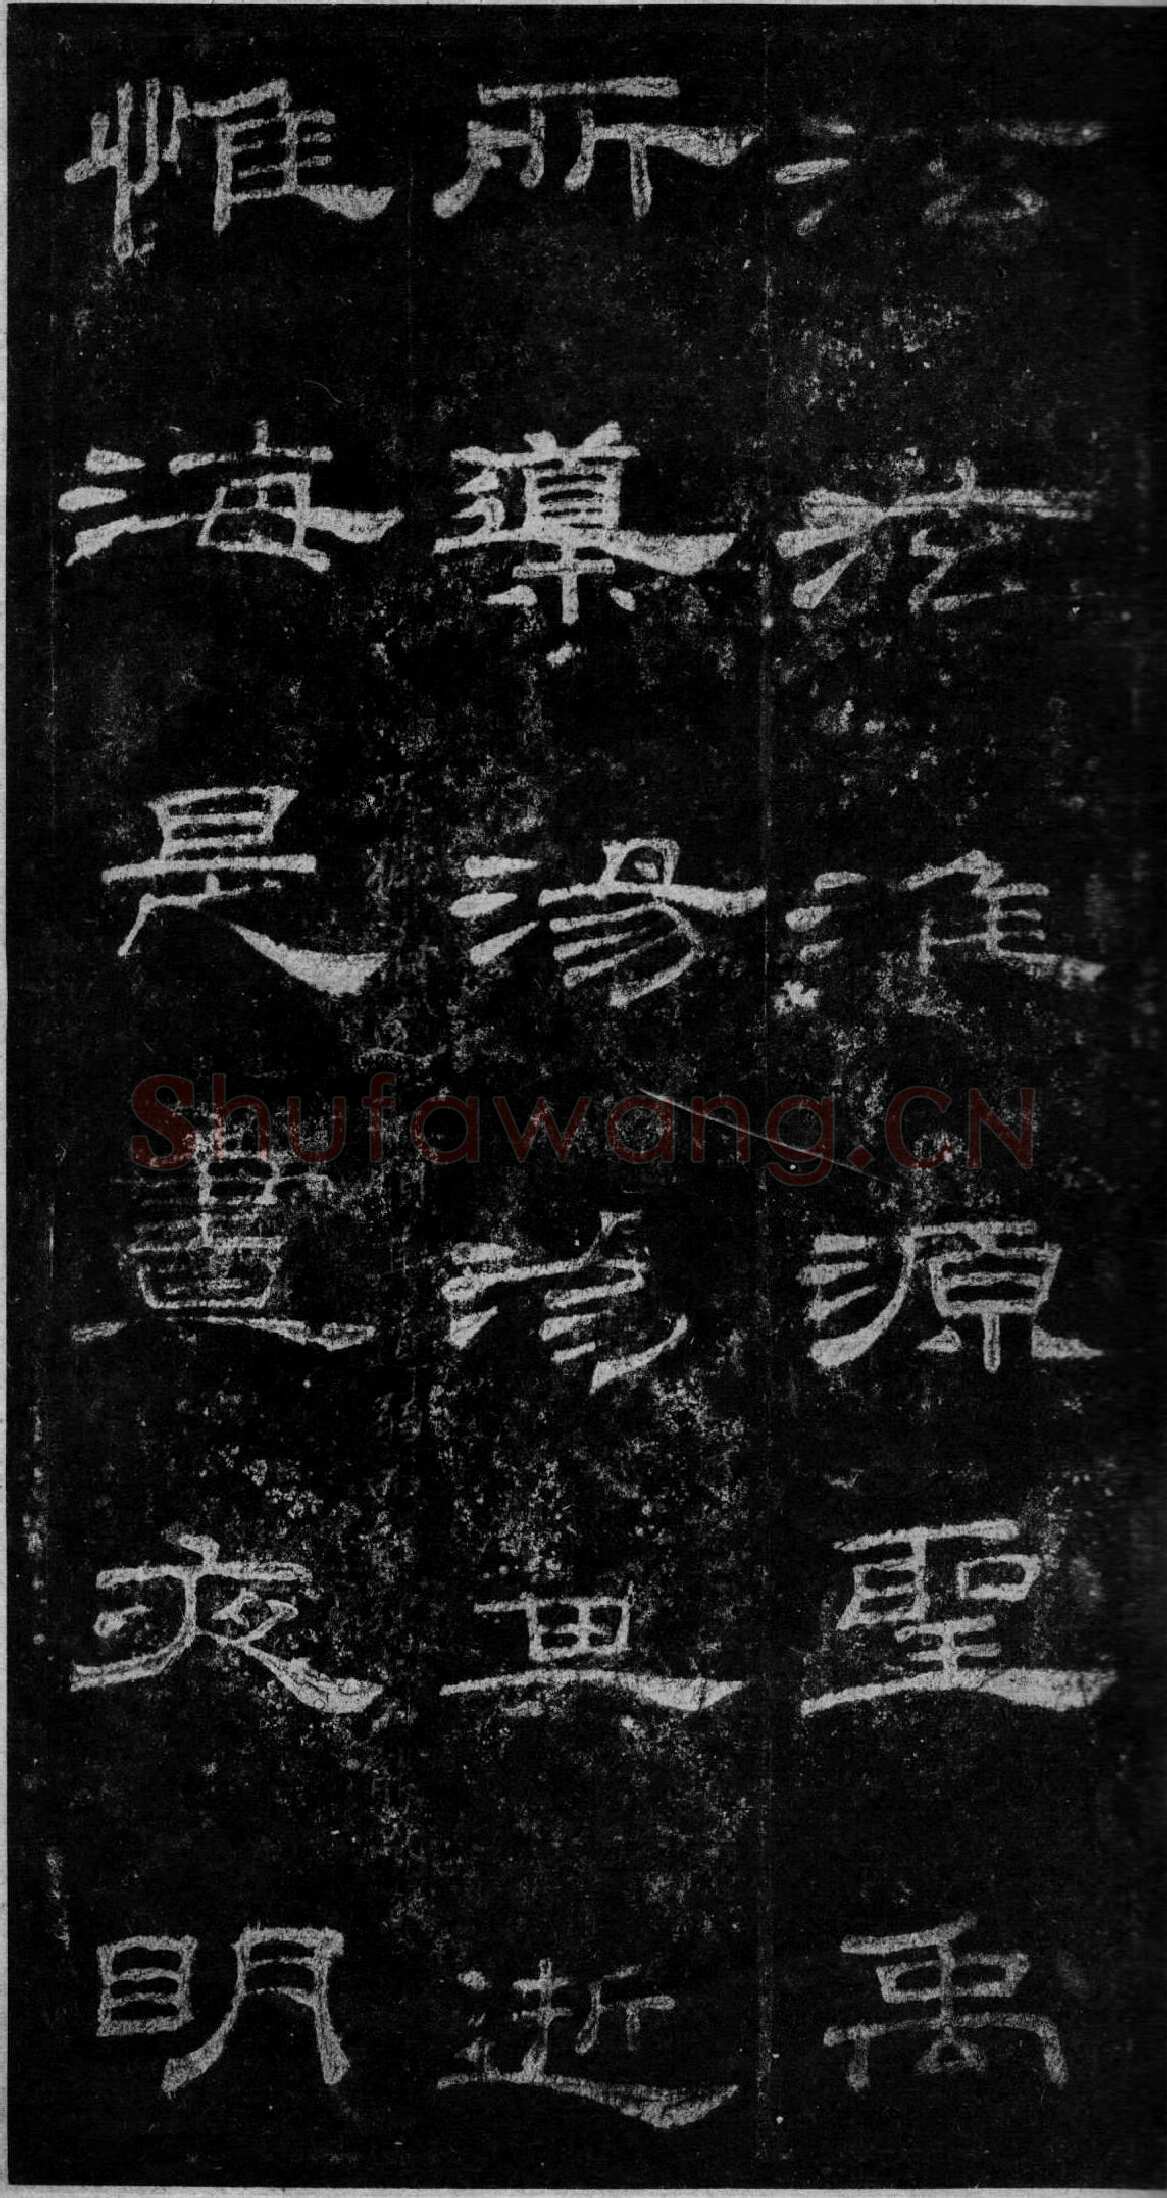 泫泫淮源聖禹
所導湯湯其逝
惟海是晝夜明
Shufawang.CN